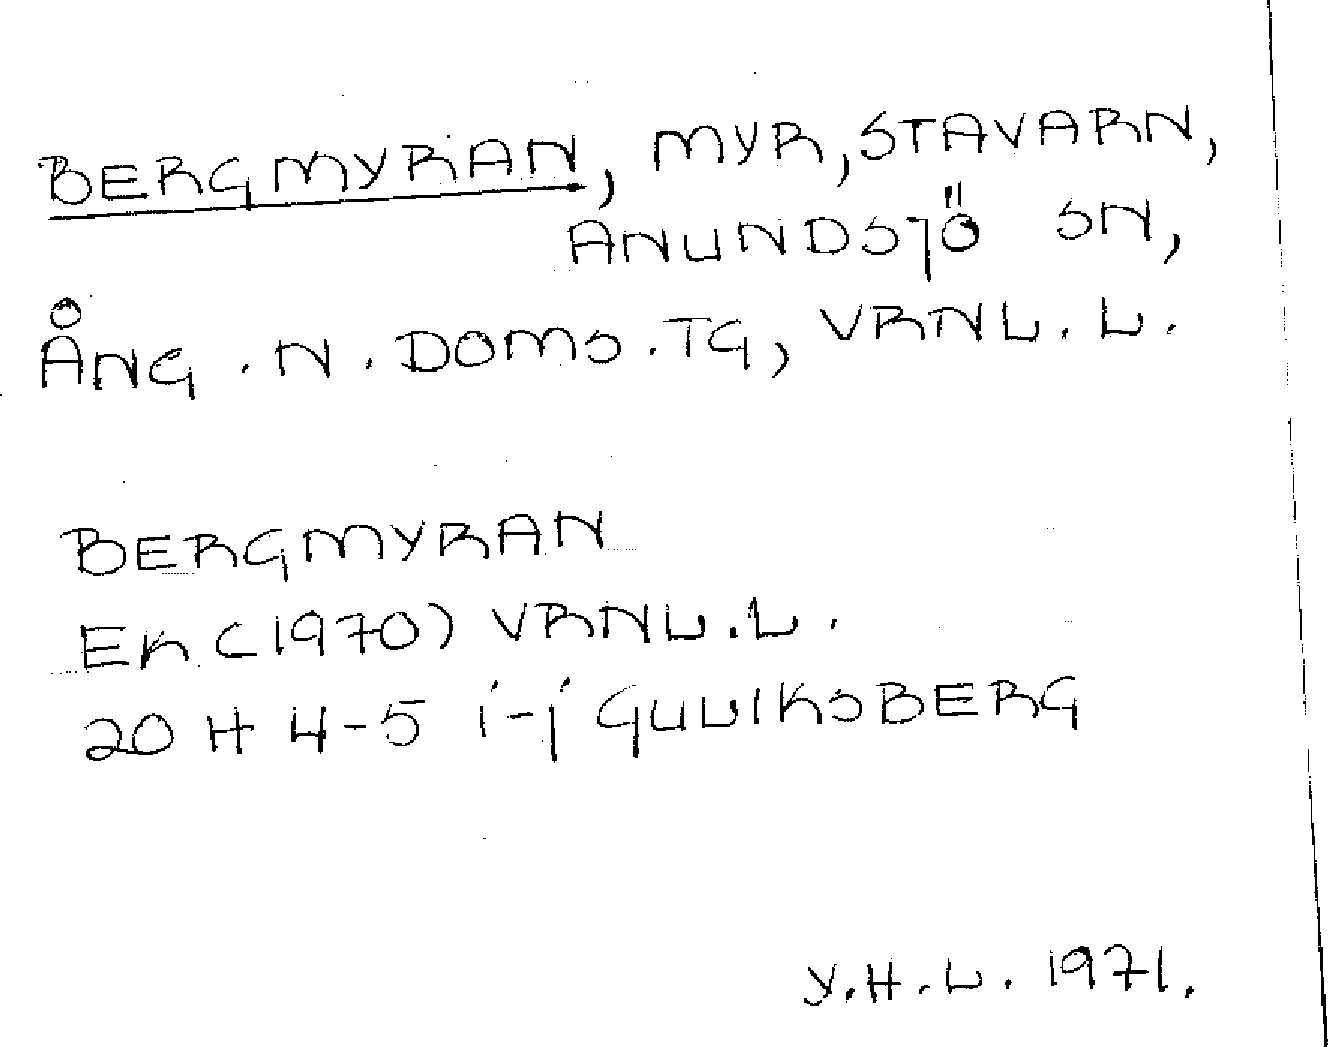 BERGMYRAN, MYR, STAVARN,
ANUNDSJÖ SN,
ÅNG. N. DOMS. TG, VRNL. L.
BERGMYRAN
EK (1970) VRNL. L.
20 H 4-5 i-j GULIKSBERG
Y.H.L. 1971.